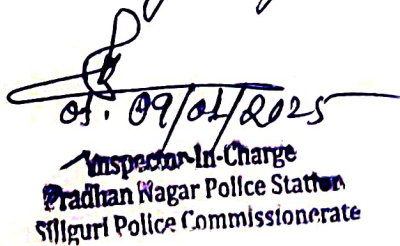 09/01/2025
Inspector-In-Charge
Pradhan Nagar Police Station
Siliguri Police Commissionerate